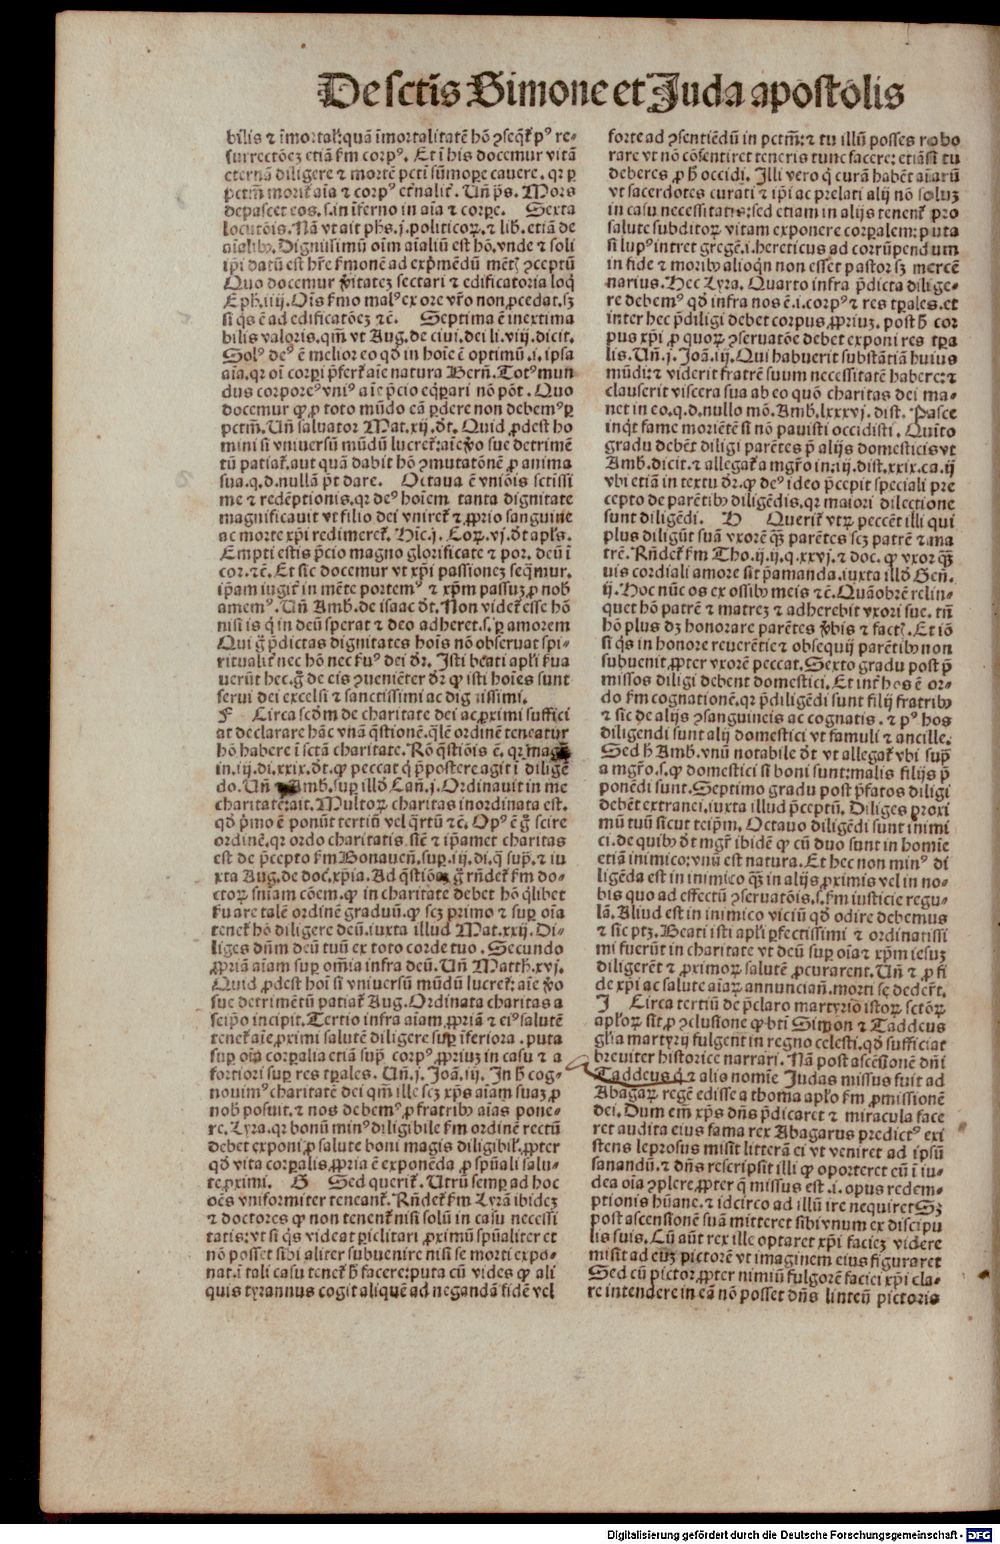 De sctis Simone et Juda apostolis
bilis ⁊ imortalꝭ: quã imortalitatẽ hõ ꝯseqͥt̃ pꝰ re⸗
surrectõeꝫ etiã ẜm corpꝰ. Et ĩ his docemur vitã
eternã diligere ⁊ mortẽ pcti sũmoꝑe cauere. qꝛ ꝑ
pctm̃ morit̃ aĩa ⁊ corpꝰ et̃nalit̃. Un̄ p̃s. Mors
depascet eos. s. in ĩferno in aĩa ⁊ corꝑe. Sexta
locutõis. Nã vt ait ph̃s. j. politicoꝝ. ⁊ lib. etiã de
aĩalibꝰ. Dignissimũ oĩm aĩaliũ est hõ. vnde ⁊ soli
ip̃i datũ est hr̃e ẜmonẽ ad exp̃mẽdũ mẽtꝭ ꝯceptũ
Quo docemur v̾itateꝫ sectari ⁊ edificatoria loqͥ
Eph̃. iiij. Oĩs ẜmo malꝰ ex ore vr̃o non ꝓcedat. sꝫ
si qͥs ẽ ad edificatõeꝫ ⁊c̃. Septima ẽ inextima
bilis valoris. qm̃ vt Aug. de ciui. dei li. viij. dicit.
Solꝰ deꝰ ẽ melior eo qd̾ in hoĩe ẽ optimũ. i. ipsa
aĩa. qꝛ oĩ corꝑi p̃fert̃ aĩe natura Bern̄. Totꝰ mun
dus corporeꝰ vniꝰ aĩe p̃cio eqͥꝑari nõ põt. Quo
docemur ꝙ ꝓ toto mũdo eã ꝑdere non debemꝰ ꝑ
pctm̃. Un̄ saluator Mat. xvj. d̾t. Quid ꝓdest ho
mini si vniuersũ mũdũ lucret̃: aĩe v̾o sue detrimẽ
tũ patiat̃. aut quã dabit hõ ꝯmutatõnẽ ꝓ anima
sua. q. d. nullã p̃t dare. Octaua ẽ vniõis sctissi
me ⁊ redẽptionis. qꝛ deꝰ hoĩem tanta dignitate
magnificauit vt filio dei vniret̃ ⁊ ꝓprio sanguine
ac morte xp̃i redimeret̃. Hic. j. Coꝝ. vj. d̾t apl̃s.
Empti estis p̃cio magno glorificate ⁊ por. deũ ĩ
cor. ⁊c̃. Et sic docemur vt xp̃i passioneꝫ seqͣmur.
ip̃am iugit̃ in mẽte portemꝰ ⁊ xp̃m passuꝫ ꝓ nob̾
amemꝰ. Un̄ Amb. de isaac d̾t. Non videt̃ esse hõ
nisi is qͥ in deũ sperat ⁊ deo adheret. s. ꝑ amorem
Qui g̾ p̃dictas dignitates hoĩs nõ obseruat spi⸗
ritualit̃ nec hõ nec ẜuꝰ dei d̾r. Isti beati apl̃i ẜua
uerũt hec. g̾ de eis ꝯueniẽter d̾r ꝙ isti hoĩes sunt
serui dei excelsi ⁊ sanctissimi ac dignissimi.
F Circa scd̾m de charitate dei ac ꝓximi suffici
at declarare hãc vnã qͣstionẽ. qͣlẽ ordinẽ teneatur
hõ habere ĩ sctã charitate. Rõ qͣstiõis ẽ. qꝛ mag̾r
in. iij. di. xxix. d̾t. ꝙ peccat qͥ p̃postere agit ĩ diligẽ
do. Un̄ ⁊ Amb. suꝑ illd̾ Can̄. j. Ordinauit in me
charitatẽ: ait. Multoꝝ charitas inordinata est.
qd̾ p̃mo ẽ ponũt tertiũ vel qͣrtũ ⁊c̃. Opꝰ ẽ g̾ scire
ordinẽ. qꝛ ordo charitatis. sic̃ ⁊ ip̃amet charitas
est de p̃cepto ẜm Bonauen̄. suꝑ. iij. di. q̾ sup̃. ⁊ iu
xta Aug. de doc. xp̃ia. Ad qͣstiõẽ g̾ rn̄det̃ ẜm do⸗
ctoꝝ sñiam cõem. ꝙ in charitate debet hõ qͥlibet
ẜuare talẽ ordinẽ graduũ. ꝙ scꝫ primo ⁊ suꝑ oĩa
tenet̃ hõ diligere deũ. iuxta illud Mat. xxij. Di⸗
liges dñm deũ tuũ ex toto corde tuo. Secundo
ꝓpriã aĩam suꝑ om̃ia infra deũ. Un̄ Matth. xvj.
Quid ꝓdest hoĩ si vniuersũ mũdũ lucret̃: aĩe v̾o
sue detrimẽtũ patiat̃ Aug. Ordinata charitas a
seip̃o incipit. Tertio infra aĩam ꝓpriã ⁊ eiꝰ salutẽ
tenet̃ aĩe ꝓximi salutẽ diligere suꝑ ĩferiora. puta
suꝑ oĩa corꝑalia etiã sup̃ corpꝰ ꝓpriuꝫ in casu ⁊ a
fortiori suꝑ res tꝑales. Un̄. j. Joã. iij. In h̾ cog⸗
nouimꝰ charitatẽ dei qm̃ ille scꝫ xp̃s aĩam suaꝫ ꝓ
nob̾ posuit. ⁊ nos debemꝰ ꝓ fratribꝰ aĩas pone⸗
re. Lyra. qꝛ bonũ minꝰ diligibile ẜm ordinẽ rectũ
debet exponi ꝓ salute boni magis diligibilꝭ. ꝓpter
qd̾ vita corꝑalis ꝓpria ẽ exponẽda ꝓ sp̃uali salu⸗
te ꝓximi. G Sed querit̃. Utrũ semꝑ ad hoc
oẽs vniformiter teneant̃. Rn̄det̃ ẜm Lyrã ibideꝫ
⁊ doctores ꝙ non tenent̃ nisi solũ in casu necessi
tatis: vt si qͥs videat ꝑiclitari ꝓximũ sp̃ualiter et
nõ posset sibi aliter subuenire nisi se morti expo⸗
nat. ĩ tali casu tenet̃ h̾ facere: puta cũ vides ꝙ ali
quis tyrannus cogit aliquẽ ad negandã fidẽ vel
forte ad ꝯsentiẽdũ in pctm̃: ⁊ tu illũ posses robo
rare vt nõ cõsentiret teneris tunc facere: etiãsi tu
deberes ꝓ h̾ occidi. Illi vero qͥ curã habẽt aĩarũ
vt sacerdotes curati ⁊ ip̃i ac prelati alij nõ soluꝫ
in casu necessitatis: sed etiam in alijs tenent̃ pro
salute subditoꝝ vitam exponere corꝑalem: puta
si lupꝰ intret gregẽ. i. hereticus ad corrũpendum
in fide ⁊ moribꝰ alioqͥn non esset pastor sꝫ mercẽ
narius. Hec Lyra. Quarto infra p̃dicta dilige⸗
re debemꝰ qd̾ infra nos ẽ. i. corpꝰ ⁊ res tꝑales. et
inter hec p̃diligi debet corpus ꝓpriuꝫ. post h̾ cor
pus xp̃i ꝓ quoꝝ ꝯseruatõe debet exponi res tꝑa
lis. Un̄. j. Joã. iij. Qui habuerit substãtiã huius
mũdi: ⁊ viderit fratrẽ suum necessitatẽ habere: ⁊
clauserit viscera sua ab eo quõ charitas dei ma⸗
net in eo. q. d. nullo mõ. Amb. lxxxvj. dist. Pasce
inqͥt fame moriẽtẽ si nõ pauisti occidisti. Quĩto
gradu debẽt diligi parẽtes p̃ alijs domesticis vt
Amb. dicit. ⁊ allegat̃ a mgr̃o in: iij. dist. xxix. ca. ij
vbi etiã in textu d̾r. ꝙ deꝰ ideo p̃cepit speciali pre
cepto de parẽtibꝰ diligẽdis. qꝛ maiori dilectione
sunt diligẽdi. H Querit̃ vtꝝ peccẽt illi qui
plus diligũt suã vxorẽ qͣꝫ parẽtes scꝫ patrẽ ⁊ ma
trẽ. Rn̄det̃ ẜm Tho. ij. ij. q. xxvj. ⁊ doc. ꝙ vxor qͣꝫ
uis cordiali amore sit p̃amanda. iuxta illd̾ Gen̄.
ij. Hoc nũc os ex ossibꝰ meis ⁊c̃. Quãobrẽ relin⸗
quet hõ patrẽ ⁊ matreꝫ ⁊ adherebit vxori sue. tñ
hõ plus dꝫ honorare parẽtes v̾bis ⁊ factꝭ. Et iõ
si qͥs in honore reuerẽtie ⁊ obsequij parẽtibꝰ non
subuenit ꝓpter vxorẽ peccat. Sexto gradu post p̃
missos diligi debent domestici. Et int̃ hos ẽ or⸗
do ẜm cognationẽ. qꝛ p̃diligẽdi sunt filij fratribꝰ
⁊ sic de alijs ꝯsanguineis ac cognatis. ⁊ pꝰ hos
diligendi sunt alij domestici vt famuli ⁊ ancille.
Sed h̾ Amb. vnũ notabile d̾t vt allegat̃ vbi sup̃
a mgr̃o. s. ꝙ domestici si boni sunt: malis filijs p̃
ponẽdi sunt. Septimo gradu post p̃fatos diligi
debẽt extranei. iuxta illud p̃ceptũ. Diliges proxi
mũ tuũ sicut teip̃m. Octauo diligẽdi sunt inimi
ci. de quibꝰ d̾t mgr̃ ibidẽ ꝙ cũ duo sunt in homie
etiã inimico: vnũ est natura. Et hec non minꝰ di
ligẽda est in inimico qͣꝫ in alijs ꝓximis vel in no⸗
bis quo ad effectũ ꝯseruatõis. s. ẜm iusticie regu⸗
lã. Aliud est in inimico viciũ qd̾ odire debemus
⁊ sic ptꝫ. Beati isti apl̃i ꝑfectissimi ⁊ ordinatissi
mi fuerũt in charitate vt deũ suꝑ oĩa ⁊ xp̃m iesuꝫ
diligerẽt ⁊ ꝓximoꝝ salutẽ ꝓcurarent. Un̄ ⁊ ꝓ fi
de xp̃i ac salute aĩaꝝ annuncian̄. morti se dedert̃.
J Circa tertiũ de p̃claro martyrio istoꝝ sctõꝝ
apl̃oꝝ sit ꝓ ꝯclusione ꝙ bt̃i Simon ⁊ Taddeus
gl̃ia martyrij fulgent in regno celesti. qd̾ sufficiat
breuiter historice narrari. Nã post ascẽsionẽ dñi
Taddeus qͥ ⁊ alis nomĩe Judas missus fuit ad
Abagaꝝ regẽ edisse a thoma apl̃o ẜm ꝓmissionẽ
dei. Dum em̃ xp̃s dñs p̃dicaret ⁊ miracula face
ret audita eius fama rex Abagarus predictꝰ exi
stens leprosus misit litterã ei vt veniret ad ip̃sũ
sanandũ. ⁊ dñs rescripsit illi ꝙ oporteret eũ ĩ iu⸗
dea oĩa ꝯplere ꝓpter q̃ missus est. i. opus redem⸗
ptionis hũane. ⁊ idcirco ad illũ ire nequiret Sꝫ
post ascensionẽ suã mitteret sibi vnum ex discipu
lis suis. Cũ aũt rex ille optaret xp̃i facieꝫ videre
misit ad euꝫ pictorẽ vt imaginem eius figuraret
Sed cũ pictor ꝓpter nimiũ fulgorẽ faciei xp̃i cla⸗
re intendere in eã nõ posset dñs linteũ pictoris
Digitalisierung gefördert durch die Deutsche Forschungsgemeinschaft - DFG